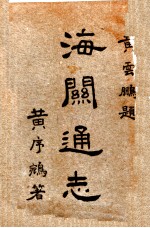 黃雲鵬題
海關通志
黃序鵷著